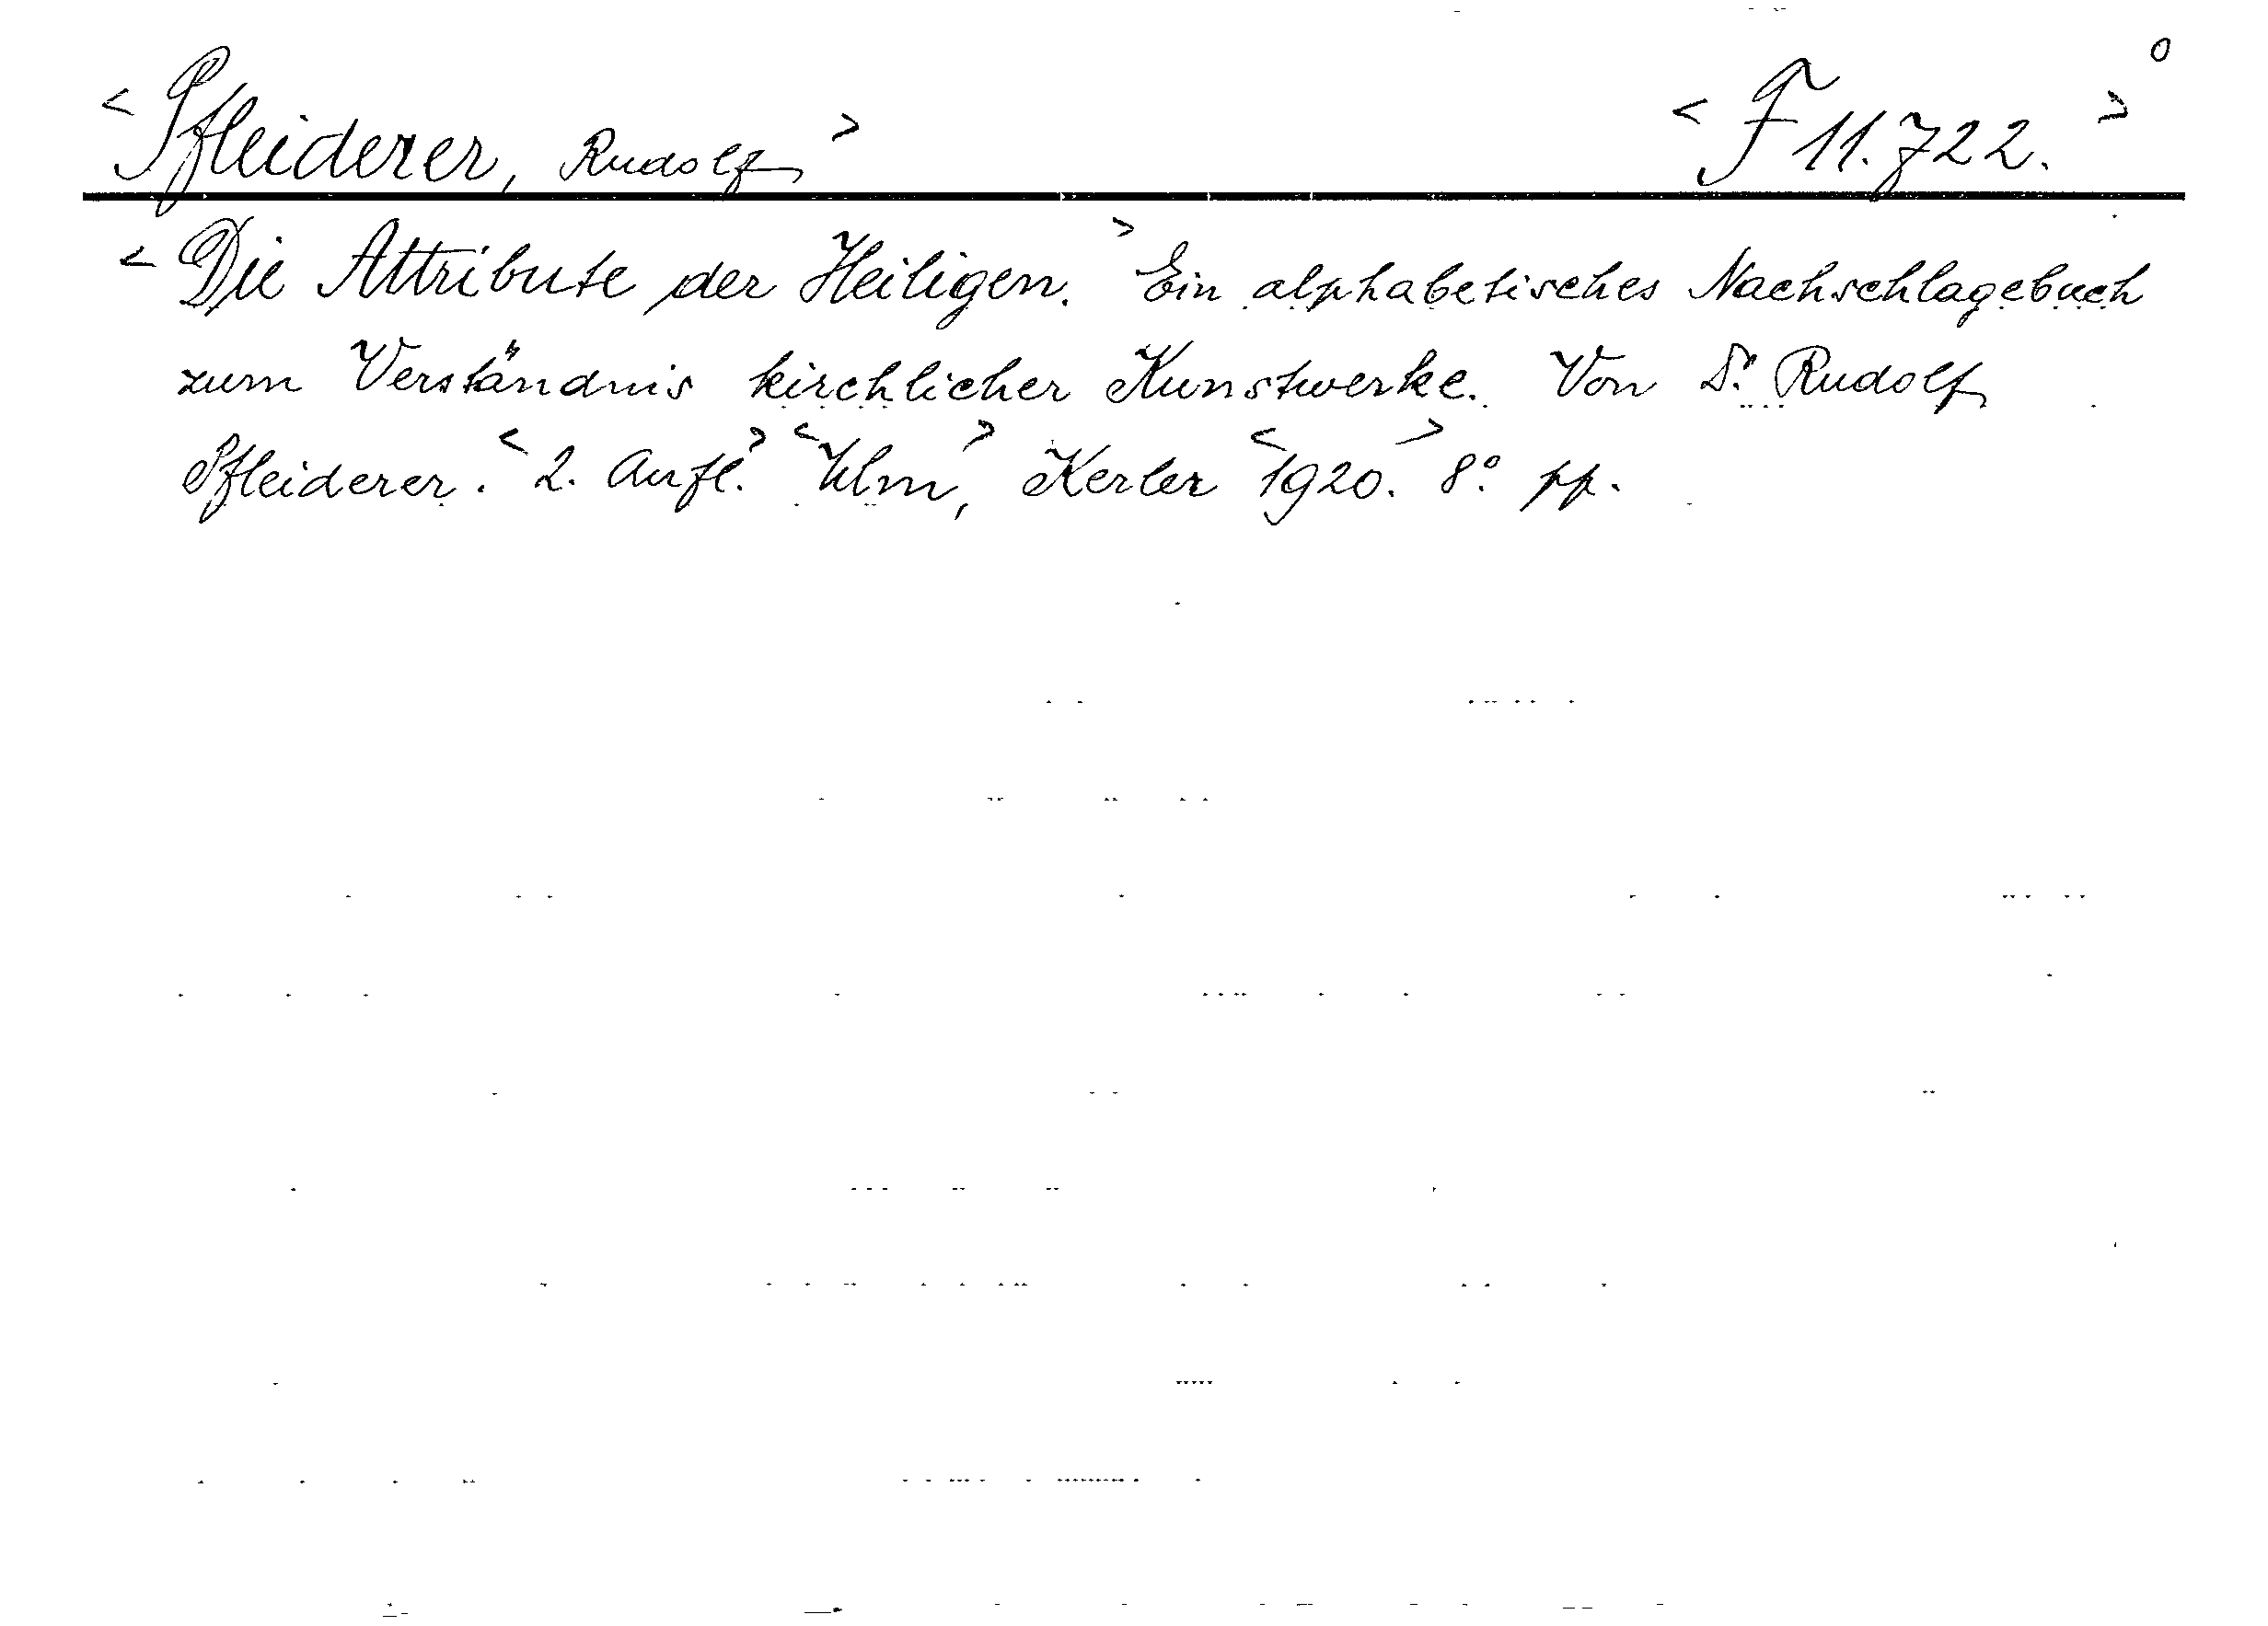 <Pfleiderer, Rudolf> <F 11.722.> o
<Die Attribute der Heiligen.> Ein alphabetisches Nachschlagebuch
zum Verständnis kirchlicher Kunstwerke. Von Dr. Rudolf
Pfleiderer. <2. Aufl.> <Ulm>, Kerler <1920.> 8° pp.